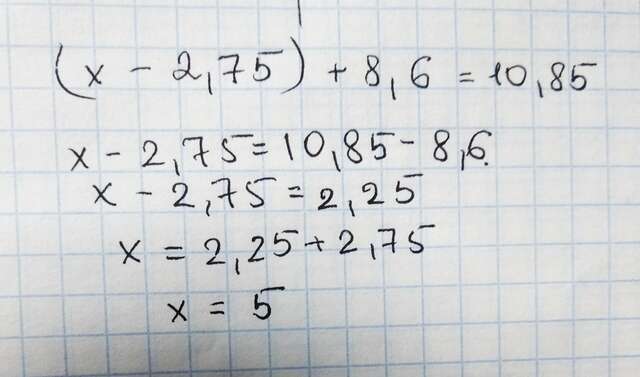 (x - 2,75) + 8,6 = 10,85
x - 2,75 = 10,85 - 8,6
x - 2,75 = 2,25
x = 2,25 + 2,75
x = 5